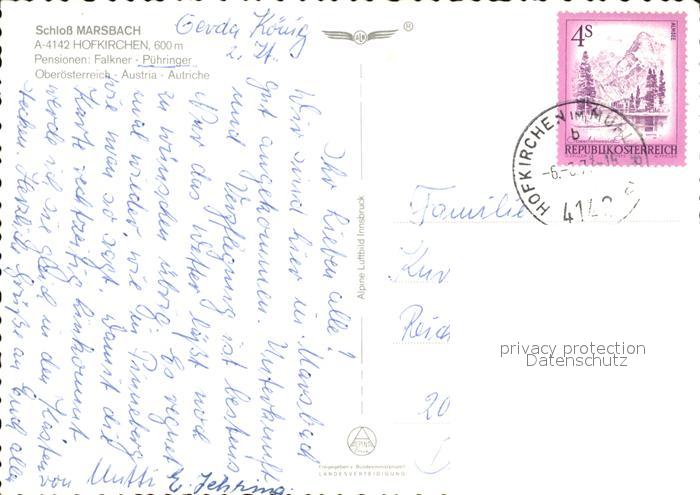 Schloß MARSBACH
A-4142 HOFKIRCHEN, 600 m
Pensionen: Falkner - Pühringer
Oberösterreich - Austria - Autriche
Gerda König
z. Zt.
®
Ihr Lieben alle!
Wir sind hier in Marsbach
gut angekommen. Unterkunft
und Verpflegung ist bestens
Nur das Wetter läßt noch
zu wünschen übrig. Es regnet
mal wieder, wie in Pinneberg
wie man so sagt. Damit die
Karte rechtzeitig hinkommt
werde ich sie gleich in den Kasten
stecken. Herzliche Grüße an Euch alle
von Mutti
Alpine Luftbild Innsbruck
ALPINE
Freigegeben v. Bundesministerium f.
LANDESVERTEIDIGUNG
4S
ALMSEE
REPUBLIK ÖSTERREICH
HOFKIRCHEN IM MÜHL
b
4142
Familie
20
privacy protection
Datenschutz